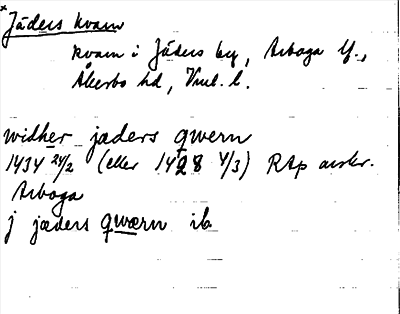 *Jäders kvarn
kvarn i Jäders by, Arboga lf.,
Åkerbo hd, Vml. l.
widher jaders qwern
1434 24/2 (eller 1428 4/3) RAp avskr.
Arboga
j jæders qwærn ib.